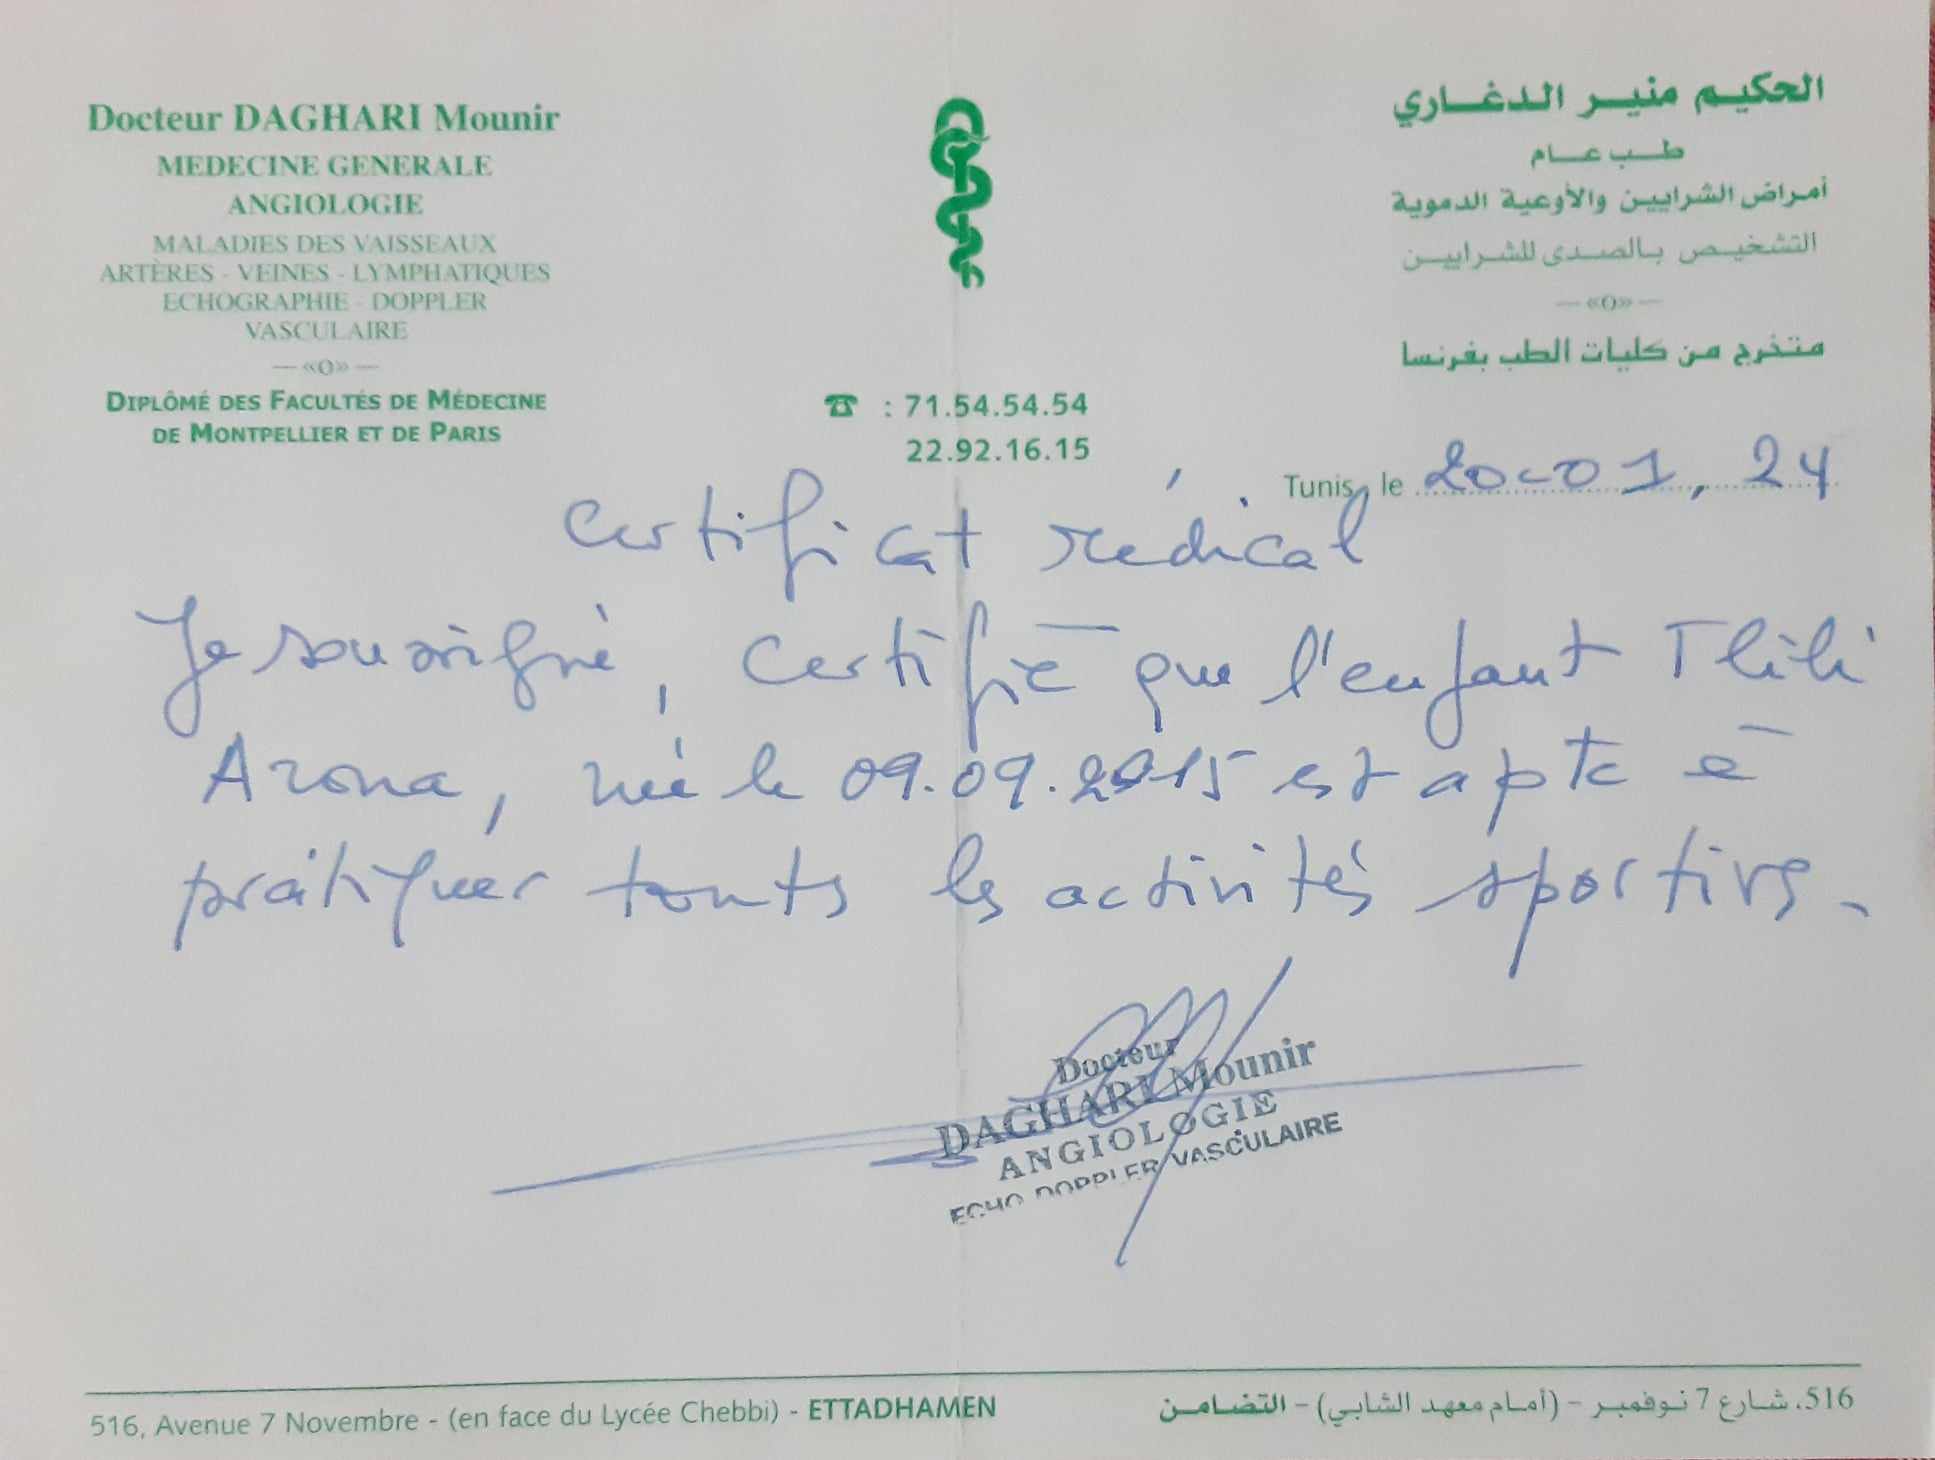 Docteur DAGHARI Mounir
MEDECINE GENERALE
ANGIOLOGIE
MALADIES DES VAISSEAUX
ARTÈRES - VEINES - LYMPHATIQUES
ECHOGRAPHIE - DOPPLER
VASCULAIRE
— «O» —
DIPLÔMÉ DES FACULTÉS DE MÉDECINE
DE MONTPELLIER ET DE PARIS
☎ : 71.54.54.54
22.92.16.15
الحكيم منير الدغاري
طب عام
أمراض الشرايين والأوعية الدموية
التشخيص بالصدى للشرايين
— «O» —
متخرج من كليات الطب بفرنسا
Tunis, le 20-01, 24
Certificat médical
Je soussigné, certifie que l'enfant Tlili
Azona, née le 09.09.2015 est apte à
pratiquer touts les activités sportives.
Docteur
DAGHARI Mounir
ANGIOLOGIE
ECHO DOPPLER VASCULAIRE
516, Avenue 7 Novembre - (en face du Lycée Chebbi) - ETTADHAMEN
516، شارع 7 نوفمبر - (أمام معهد الشابي) - التضامن